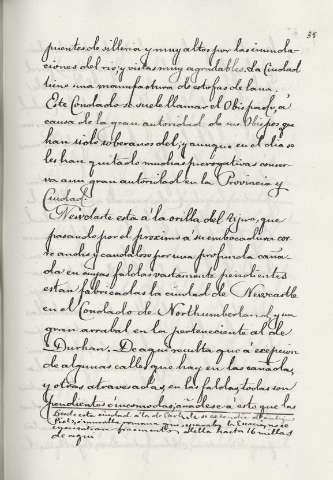 35
puentes de silleria y muy altos por las inunda-
ciones del rio, y vistas muy agradables. La Ciudad
tiene una manufactura de estofas de lana.
Este Condado se suele llamar el Obispado, á
causa de la gran autoridad de sus Obispos que
han sido soberanos del; y aunque en el dia se
les han quitado muchas prerogativas conser-
van aun gran autoridad en la Provincia y
Ciudad.
Newcastle está á la orilla del que
pasando por el proximo á su embocadura cor-
re ancho y caudaloso por una profunda caña-
da en cuyas faldas vastamente pendientes
están fabricadas la ciudad de Newcastle
en el Condado de Northumberland, y un
gran arrabal en la perteneciente al de
Durhan. De aqui resulta que a excepcion
de algunas calles que hay en las cañadas,
y otras atravesadas, en las faldas, todas son
pendientes é incomodas; añadese á esto que las
Desde esta ciudad á la de Carlisle se extendia el antiguo
muralla romana que separaba la Escocia; y se
encuentran fragmentos della hasta 16 millas
de aqui